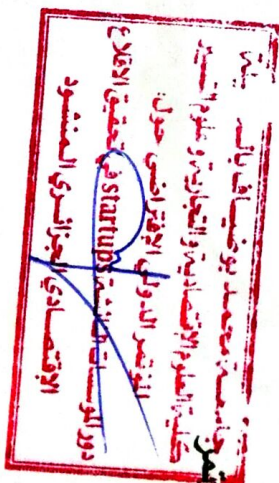 جامعة محمد بوضياف بالمسيلة
كلية العلوم الاقتصادية والتجارية وعلوم التسيير
الملتقى الدولي الافتراضي حول:
دور المؤسسات الناشئة startups في تحقيق الإقلاع
الاقتصادي الجزائري المنشود